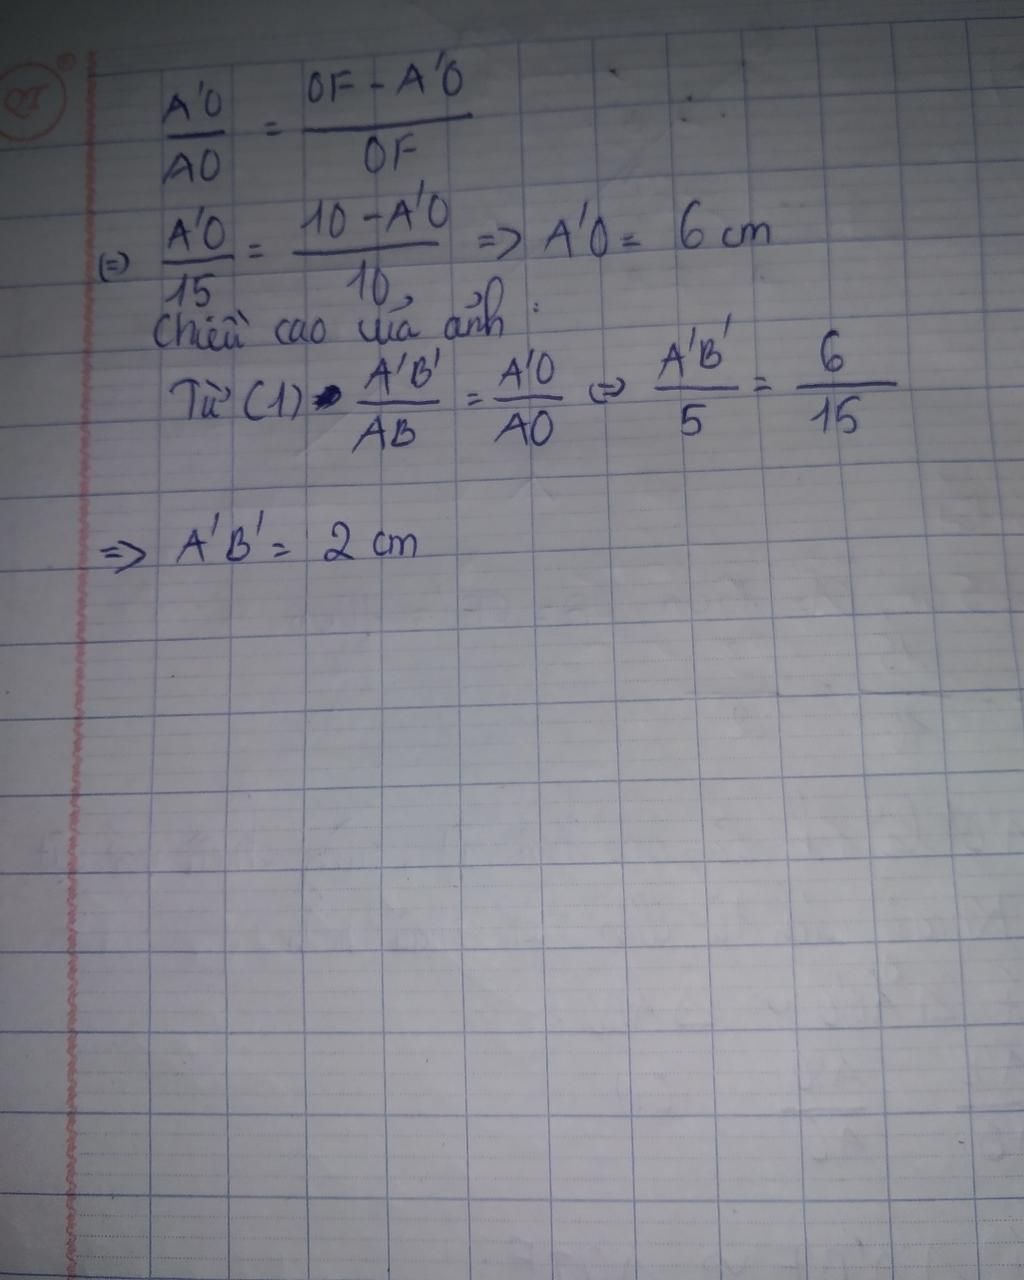 A'O/AO = (OF - A'O)/OF
(=) A'O/15 = (10 - A'O)/10 => A'O = 6 cm
Chiều cao của ảnh :
Từ (1) A'B'/AB = A'O/AO (=) A'B'/5 = 6/15
=> A'B' = 2 cm